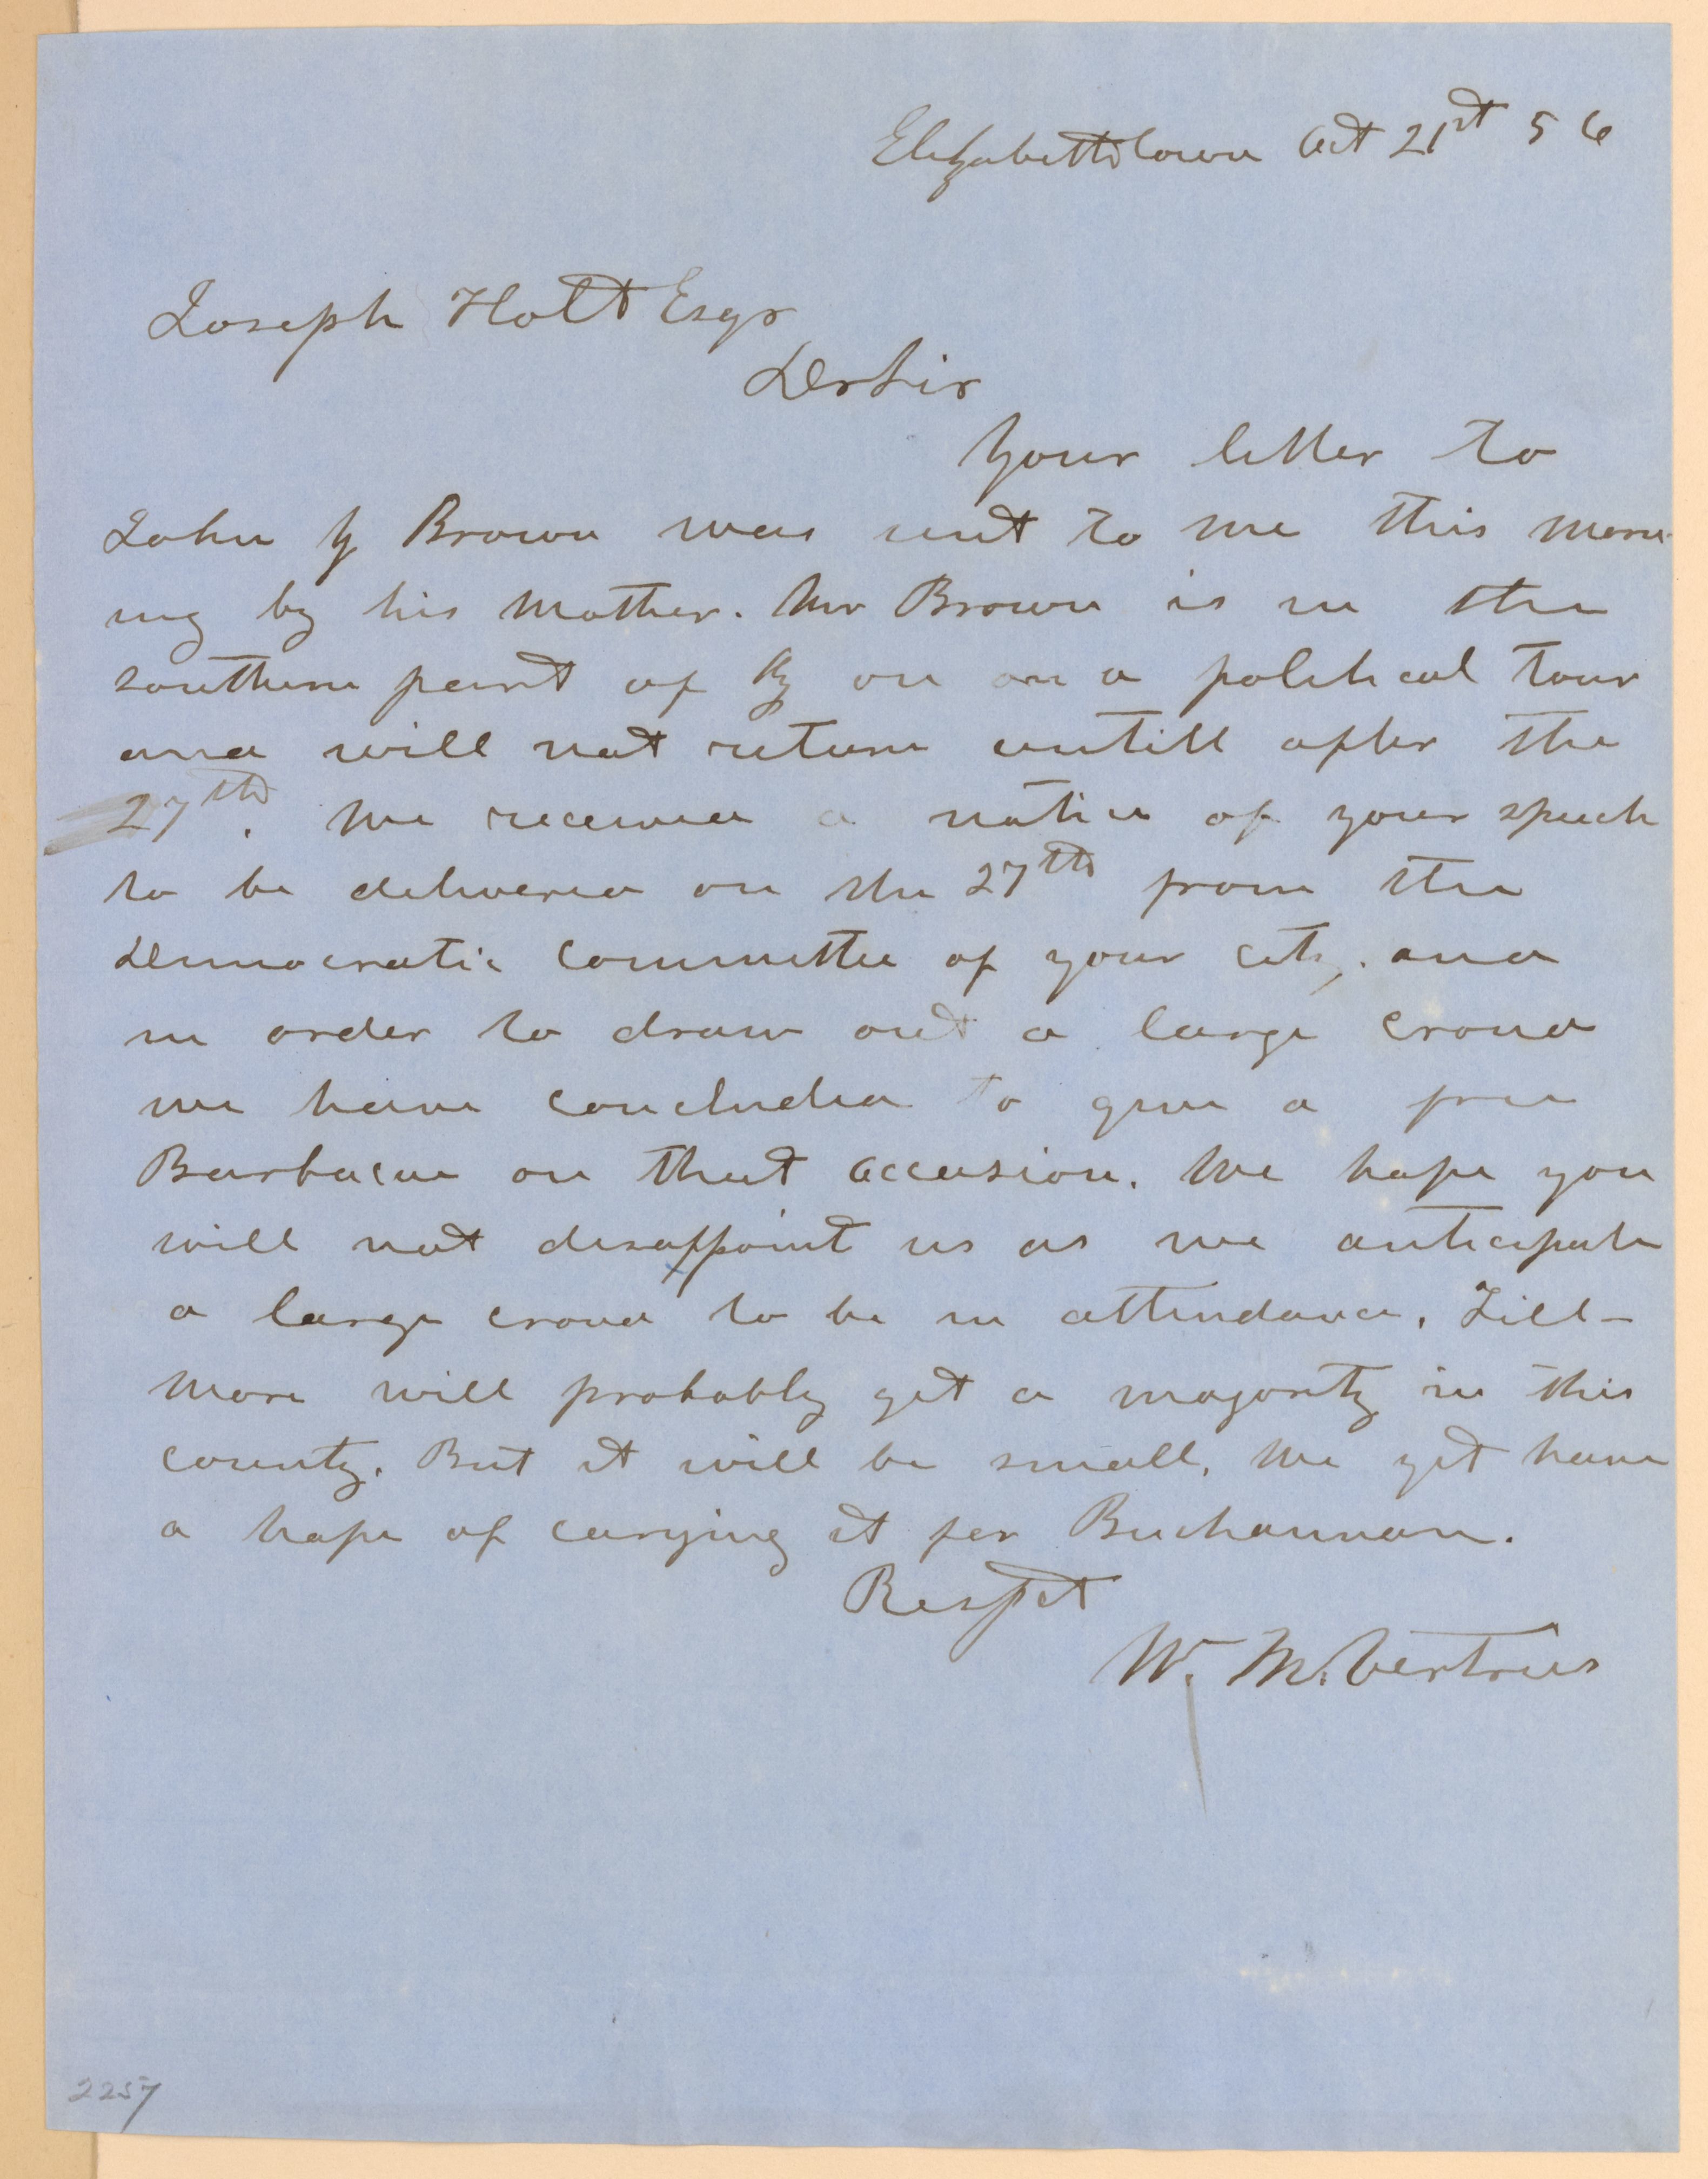 Elizabethtown Oct 21st 56
Joseph Holt Esqr
Dr Sir
Your letter to
John Y Brown was sent to me this morn-
ing by his Mother. Mr Brown is in the
southern part of Ky on on a political tour
and will not return untill after the
27th. We received a notice of your speech
to be delivered on the 27th from the
Democratic committee of your city, and
in order to draw out a large croud
we have concluded to give a free
Barbacue on that occasion. We hope you
will not disappoint us as we anticipate
a large croud to be in attendance. Fill-
more will probably get a majority in this
county. But it will be small. We yet have
a hope of carying it for Buchannan.
Respct
W. M. Vertrees
2257